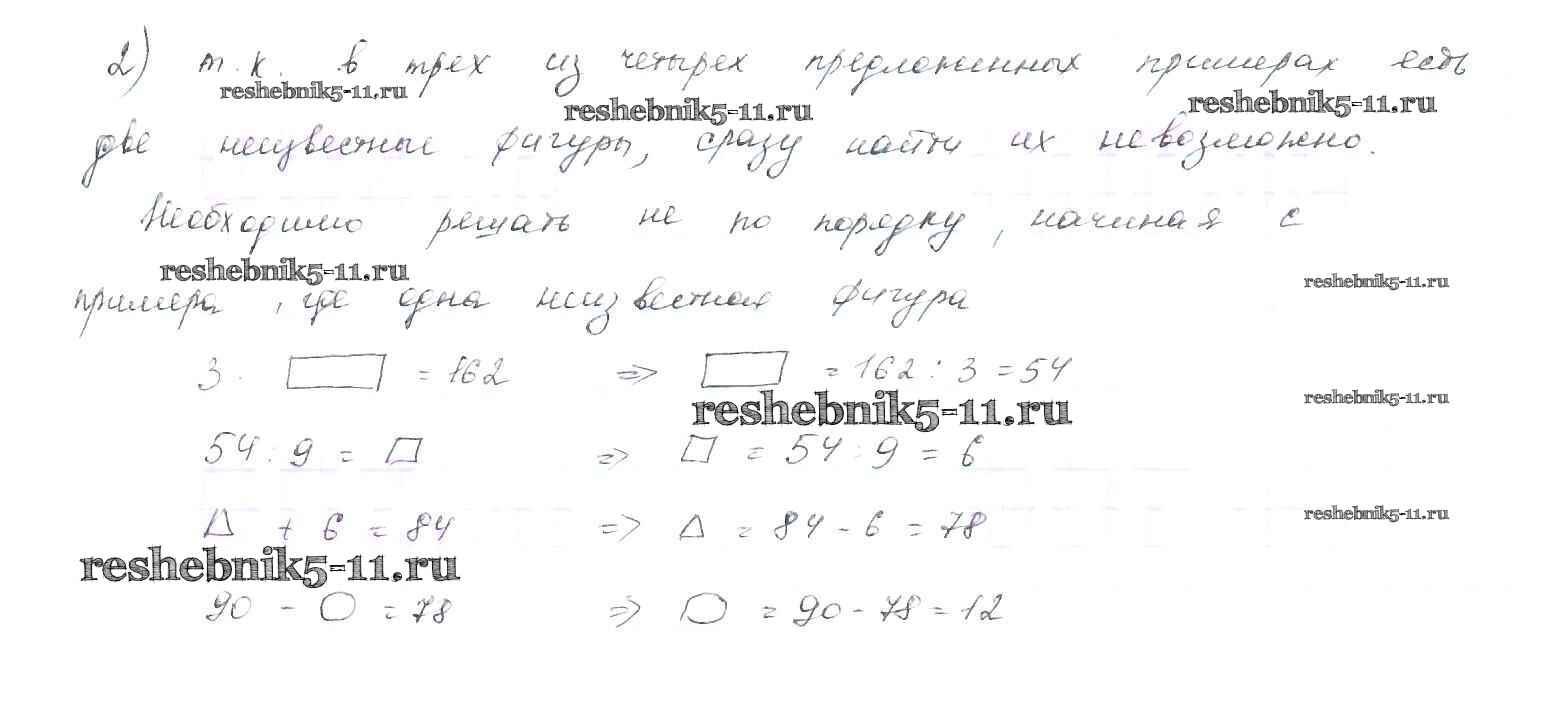 2) т.к. в трех из четырех предложенных примерах есть
reshebnik5-11.ru reshebnik5-11.ru reshebnik5-11.ru
две неизвестные фигуры, сразу найти их невозможно.
Необходимо решать не по порядку, начиная с
reshebnik5-11.ru reshebnik5-11.ru
примера, где одна неизвестная фигура
3 · ▭ = 162 => ▭ = 162 : 3 = 54
reshebnik5-11.ru reshebnik5-11.ru
54 : 9 = □ => □ = 54 : 9 = 6
reshebnik5-11.ru
△ + 6 = 84 => △ = 84 - 6 = 78
reshebnik5-11.ru
90 - ○ = 78 => ○ = 90 - 78 = 12